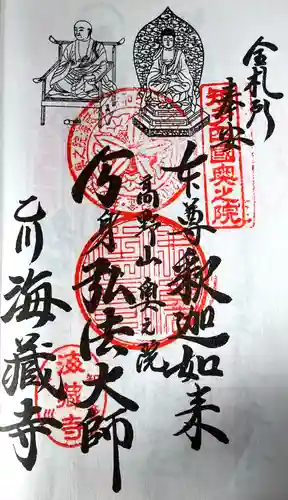 金札所
奉安
本尊釈迦如来
高野山奥之院
分身弘法大師
乙川海藏寺
國奥之院
海藏寺